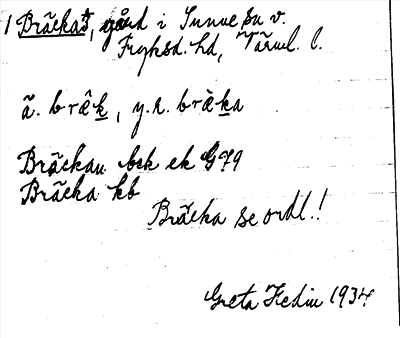 1 Bräcka, gård i Sunne sn v.
Fryksd. hd, Värml. l.
ä. bräk, y.r. bräka
Bräckan bsk ek G79
Bräcka kb
Bräcka se ordl.!
Greta Hedin 1934